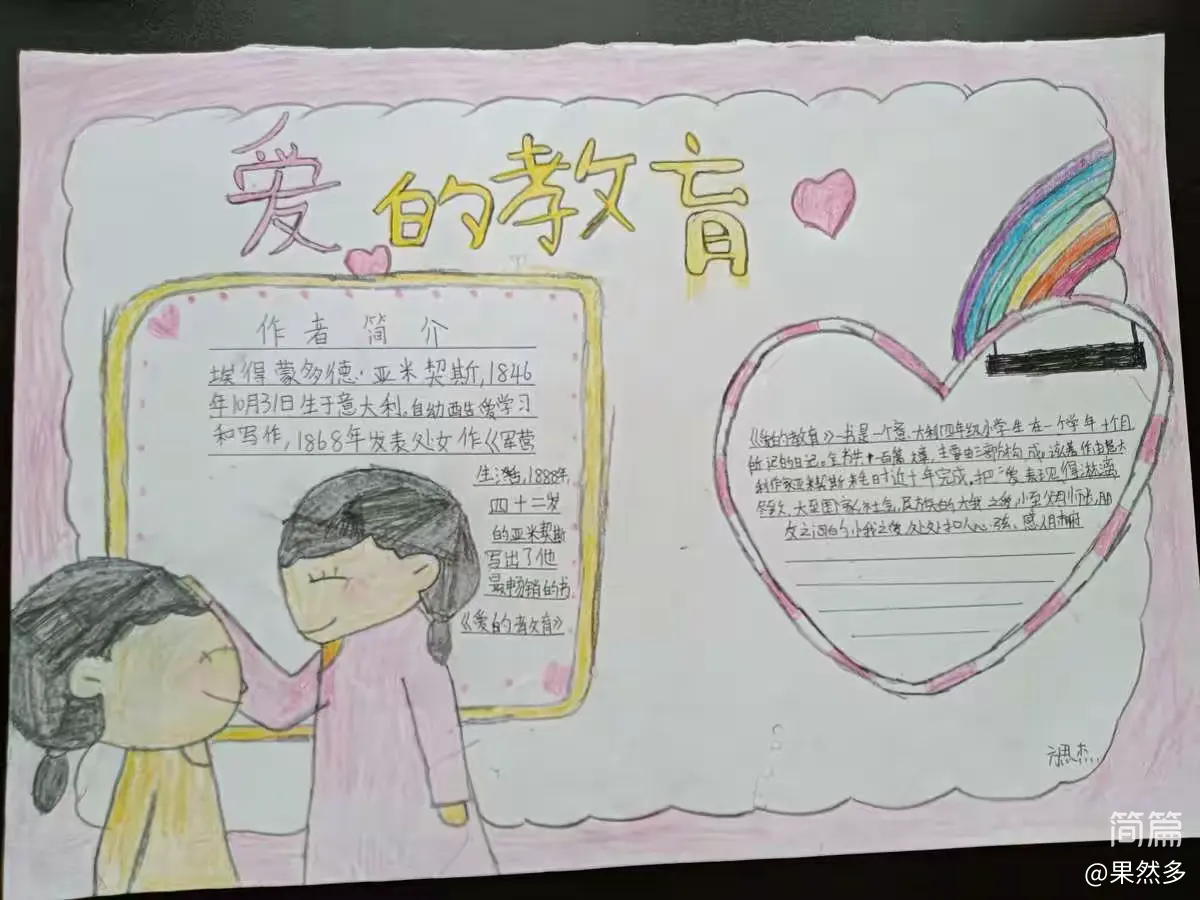 爱的教育
作者简介
埃得蒙多德·亚米契斯,1846
年10月31日生于意大利,自幼酷爱学习
和写作,1868年发表处女作《军营
生活》,1888年,
四十二岁
的亚米契斯
写出了他
最畅销的书
《爱的教育》
《爱的教育》一书是一个意大利四年级小学生在一个学年十个月
所记的日记。全书共一百篇文章,主要由三部分构成。该著作由意大
利作家亚米契斯耗时近十年完成。把“爱”表现得淋漓
尽致,大至国家、社会、民族的大我之爱,小至父母、师长、朋
友之间的小我之爱,处处扣人心弦、感人肺腑
思杰
简篇
@果然多